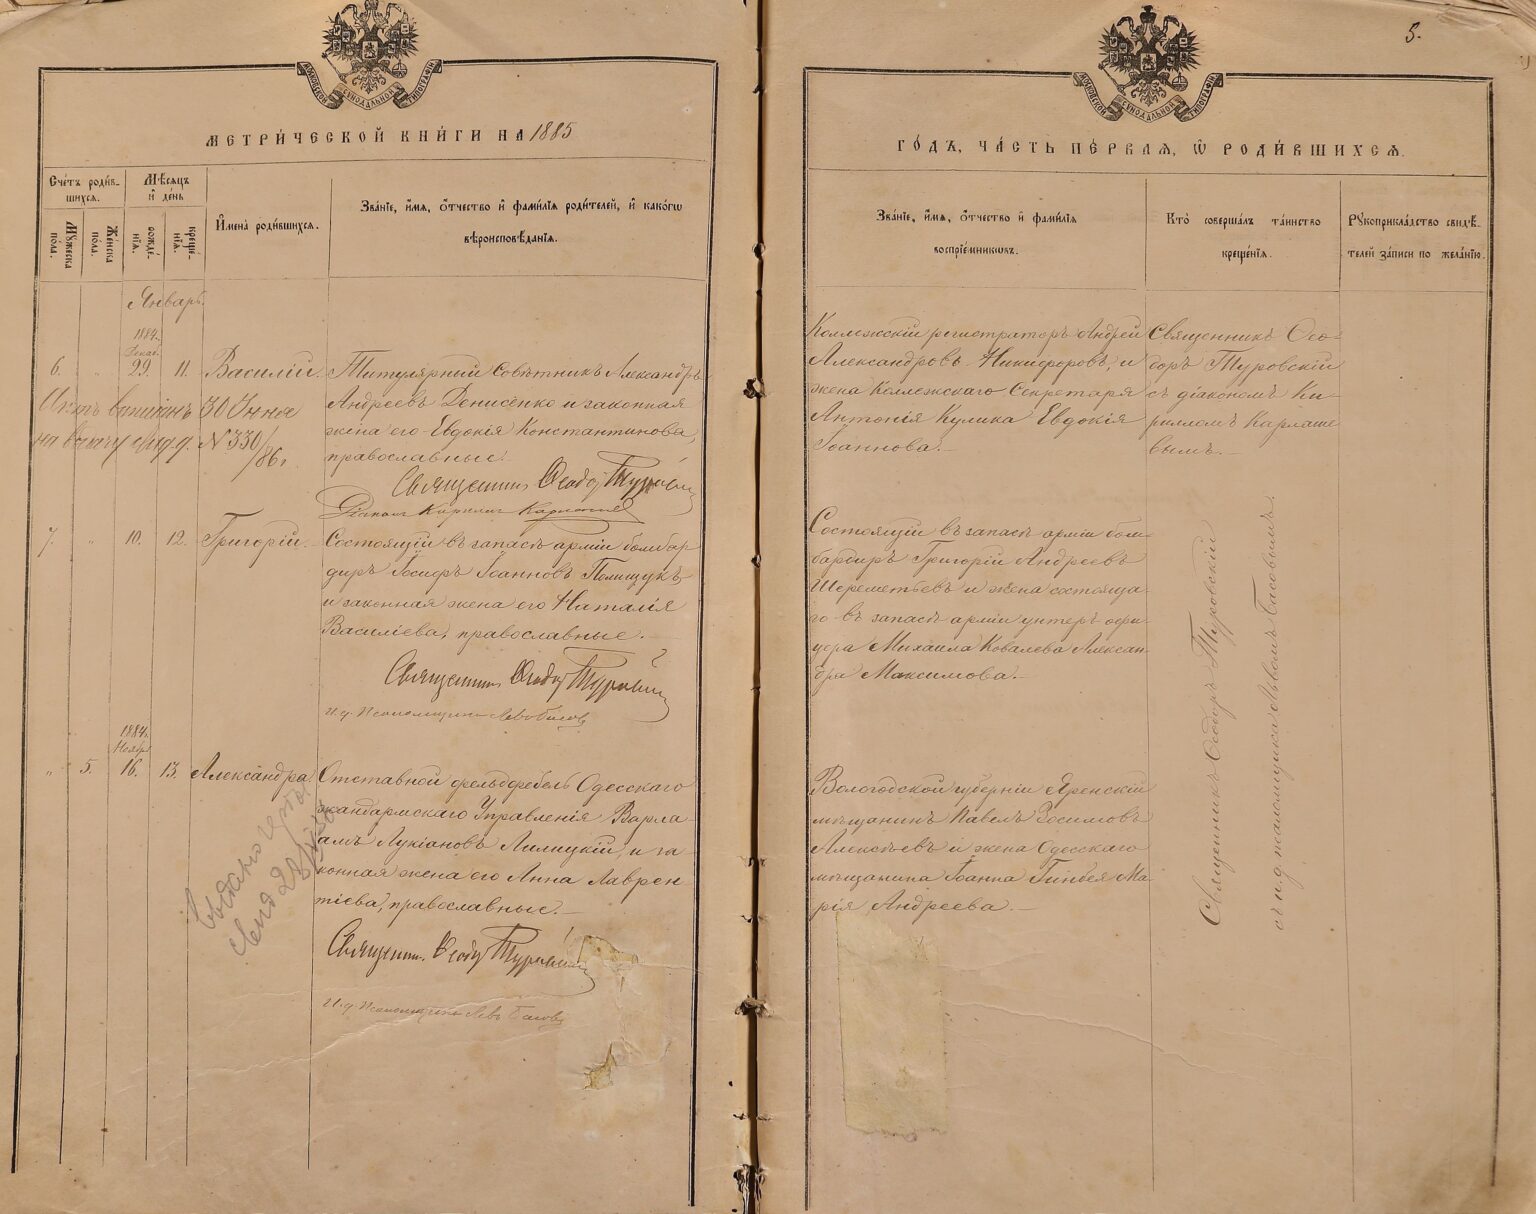 МОСКОВСКОЙ СѴНОДАЛЬНОЙ ТИПОГРАФІИ
МЕТРИ́ЧЕСКОЙ КНИ́ГИ НА 1885
Сче́тъ роди́в-
шихсѧ.
Мѣ́сѧцъ
и҆ де́нь
Мꙋ́жеска
по́ла.
Же́нска
по́ла.
рожде́-
нїѧ.
креще́-
нїѧ.
И҆мена̀ роди́вшихсѧ.
Зва́нїе, и҆́мѧ, ѻ҆́тчество и҆ фами́лїѧ роди́телей, и҆ како́гѡ
вѣроисповѣ́данїѧ.
Январь.
1884.
Декаб.
6. " 29. 11. Василій. Титулярный Совѣтникъ Александръ
Андреевъ Денисенко и законная
жена его Евдокія Константинова,
православные.
30 Іюне
на выдачу
N 330/86 г
Священникъ Ѳеодоръ Туровскій
Діаконъ Кириллъ Карпашевъ
7. " 10. 12. Григорій. Состоящій въ запасѣ арміи бомбар-
диръ Іосифъ Іоанновъ Полищукъ
и законная жена его Наталія
Василіева, православные.
Священникъ Ѳеодоръ Туровскій
И. д. Псаломщика Левъ Басовъ
1884.
Ноября
" 5. 16. 13. Александра Отставной фельдфебель Одесскаго
жандармскаго Управленія Варла-
амъ Лукіановъ Лилицкій, и за-
конная жена его Анна Лаврен-
тіева, православные.
Священникъ Ѳеодоръ Туровскій
И. д. Псаломщика Левъ Басовъ
5.
МОСКОВСКОЙ СѴНОДАЛЬНОЙ ТИПОГРАФІИ
ГО́ДЪ, ЧА́СТЬ ПЕ́РВАѦ, Ѡ҆ РОДИ́ВШИХСѦ.
Зва́нїе, и҆́мѧ, ѻ҆́тчество и҆ фами́лїѧ
воспрїе́мникѡвъ.
Кто̀ соверша́лъ та́инство
креще́нїѧ.
Рꙋкоприкла́дство свидѣ́-
телей за́писи по жела́нїю.
Коллежскій регистраторъ Андрей
Александровъ Никифоровъ, и
жена Коллежскаго Секретаря
Антонія Кулика Евдокія
Іоаннова.
Священникъ Ѳео-
доръ Туровскій
съ діакономъ Ки-
рилломъ Карпаше-
вымъ.
Состоящій въ запасѣ арміи бом-
бардиръ Григорій Андреевъ
Шереметьевъ и жена состояща-
го въ запасѣ арміи унтеръ офи-
цера Михаила Ковалева Алексан-
дра Максимова.
Вологодской губерніи Яренскій
мѣщанинъ Павелъ Зосимовъ
Алексѣевъ и жена Одесскаго
мѣщанина Іоанна Гинбея Ма-
рія Андреева.
Священникъ Ѳеодоръ Туровскій
съ и. д. псаломщика Львомъ Басовымъ.